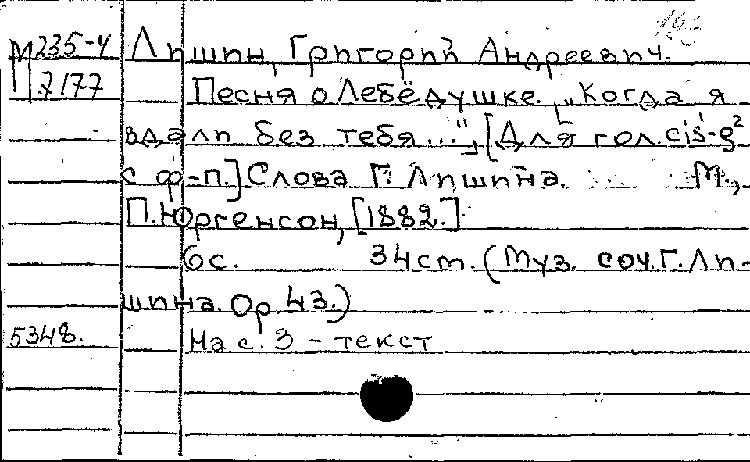 М 235-4
7177
Лишин, Григорий Андреевич.
Песня о Лебёдушке. „Когда я
вдали без тебя..." [Для гол. cis¹-g²
с ф-п.] Слова Г. Лишина. М.,
П. Юргенсон, [1882.]
6с. 34см. (Муз. соч. Г. Ли-
шина. Ор. 43.)
5348. На с. 3 - текст